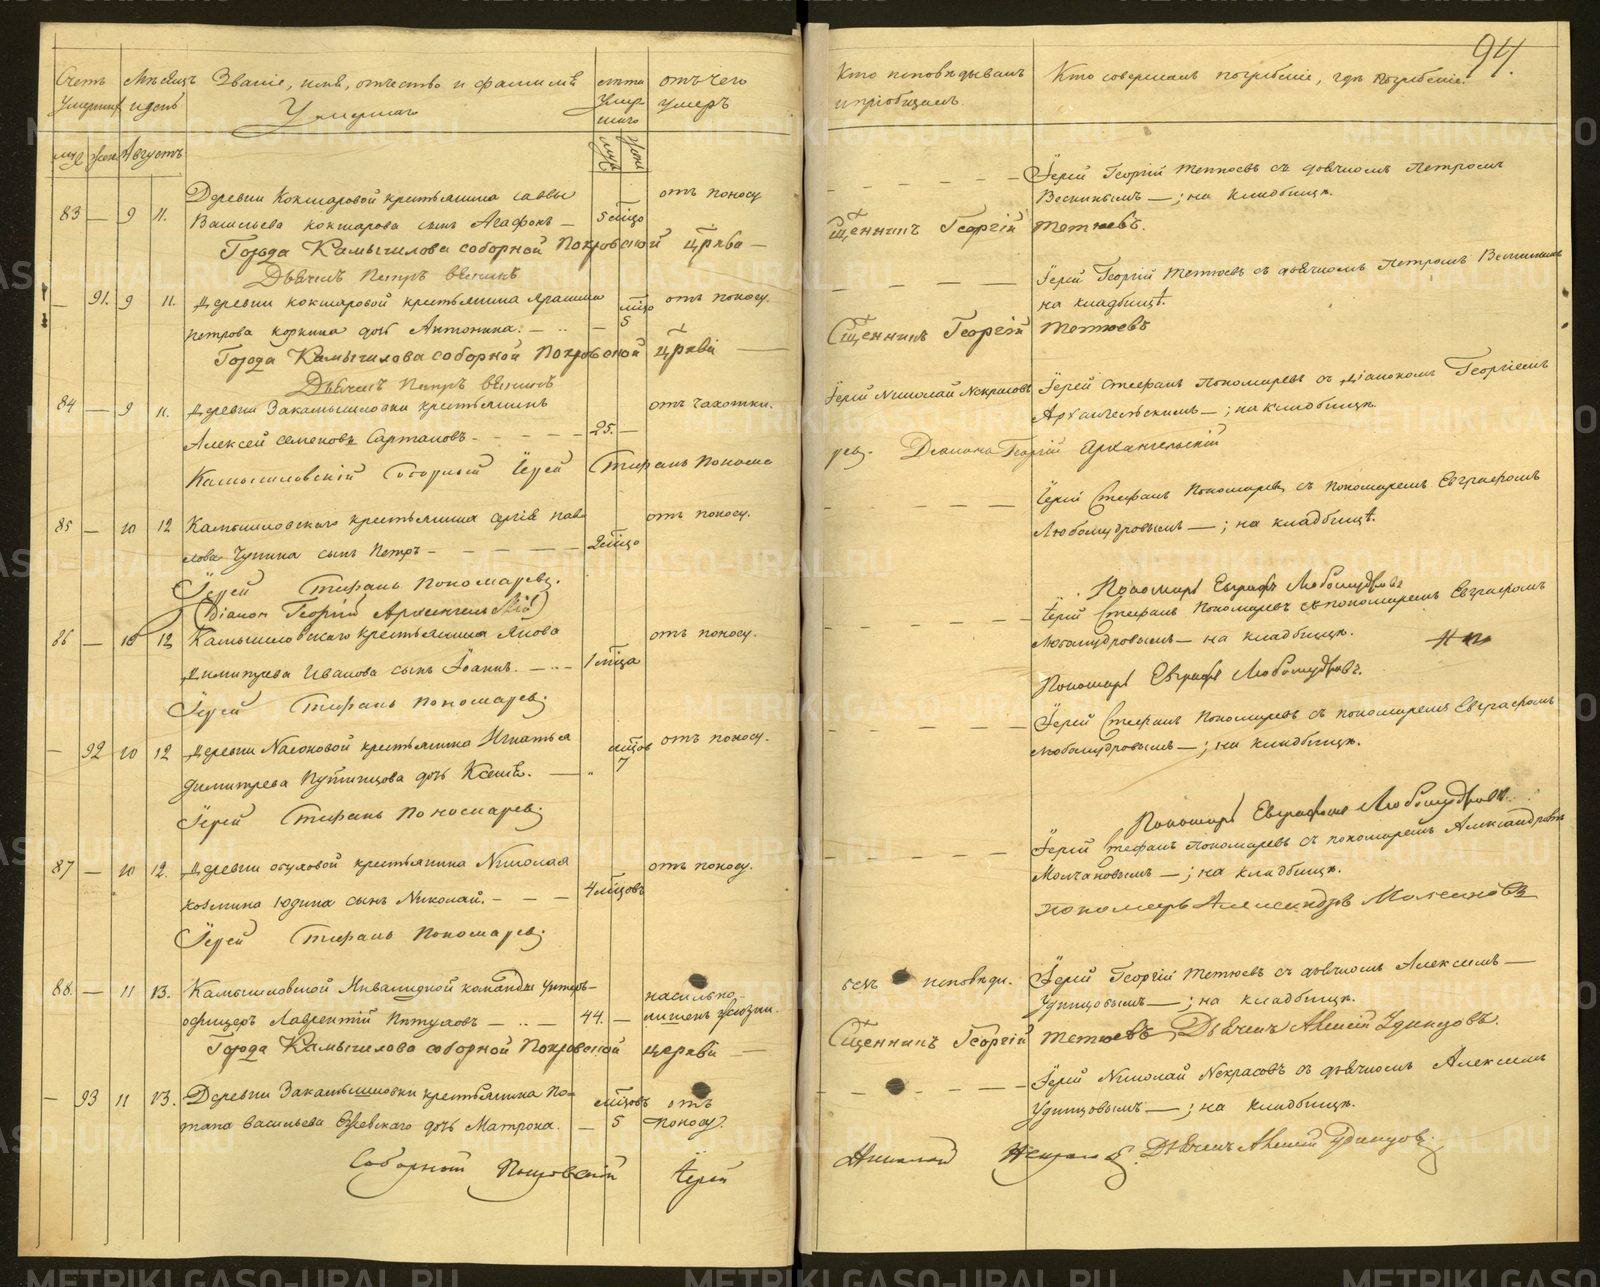 94.
Счетъ Умершихъ
Мѣсяцъ и день
Званіе, имя, отчество и фамилія Умершаго
лѣта Умершаго
отъ чего умеръ
Кто исповѣдывалъ и пріобщалъ.
Кто совершалъ погребеніе, гдѣ погребены.
муж. жен. Августъ
муж. жен.
83 — 9 11. Деревни Кокшаровой крестьянина Саввы
Васильева Кокшарова сынъ Агафонъ — 5 мцъ
отъ поносу
Іерей Георгій Тетюевъ съ дьячкомъ Петромъ
—; на кладбищѣ.
Города Камышлова соборной Покровской црква — Сщенникъ Георгій Тетюевъ.
Дьячекъ Петръ
— 91. 9 11. Деревни Кокшаровой крестьянина
Петрова Коркина дочь Антонина. — мцъ 5
отъ поносу.
Іерей Георгій Тетюевъ съ дьячкомъ Петромъ
на кладбищѣ.
Города Камышлова соборной Покровской цркви — Сщенникъ Георгій Тетюевъ
Дьячекъ Петръ
84 — 9 11. Деревни Закамышловки крестьянинъ
Алексей Семеновъ Сартаковъ — 25. —
отъ чахотки.
Іерей Николай Некрасовъ
Іерей Стефанъ Пономаревъ съ діакономъ Георгіемъ
Архангельскимъ —; на кладбищѣ.
Камышловскій Соборный Іерей Стефанъ Пономаревъ. Діаконъ Георгій Архангельскій
85 — 10 12 Камышловскаго крестьянина Сергія Павлова
Чупина сынъ Петръ — 2 мцъ
отъ поносу.
Іерей Стефанъ Пономаревъ съ пономаремъ Евграфомъ
Любомудровымъ —; на кладбищѣ.
Іерей Стефанъ Пономаревъ.
(Діаконъ Георгій Архангельскій)
Пономарь Евграфъ Любомудровъ
86 — 10 12 Камышловскаго крестьянина Якова
Димитрева Иванова сынъ Іоаннъ. — 1 мца
отъ поносу.
Іерей Стефанъ Пономаревъ съ пономаремъ Евграфомъ
Любомудровымъ — на кладбищѣ.
Іерей Стефанъ Пономаревъ
Пономарь Евграфъ Любомудровъ.
— 92 10 12 Деревни Насоновой крестьянина Игнатья
Димитрева Путинцова дочь Ксенія. — мцов 7
отъ поносу.
Іерей Стефанъ Пономаревъ съ пономаремъ Евграфомъ
Любомудровымъ —; на кладбищѣ.
Іерей Стефанъ Пономаревъ
Пономарь Евграфъ Любомудровъ
87 — 10 12. Деревни Обуховой крестьянина Николая
Козмина Юдина сынъ Николай. — 4 мцовъ
отъ поносу.
Іерей Стефанъ Пономаревъ съ пономаремъ Александромъ
Молчановымъ —; на кладбищѣ.
Іерей Стефанъ Пономаревъ
пономарь Александръ Молчановъ
88. — 11 13. Камышловской Инвалидной команды унтеръ-
офицеръ Лаврентій Петуховъ — 44. —
насильно лишенъ жизни.
безъ исповѣди.
Іерей Георгій Тетюевъ съ дьячкомъ Алексіемъ —
Удинцовымъ —; на кладбищѣ.
Города Камышлова соборной Покровской церкви — Сщенникъ Георгій Тетюевъ, Дьячекъ Алексій Удинцовъ.
— 93 11 13. Деревни Закамышловки крестьянина По-
тапа Васильева дочь Матрона. — мцовъ 5
отъ поносу.
Іерей Николай Некрасовъ съ дьячкомъ Алексіемъ
Удинцовымъ —; на кладбищѣ.
Соборной Покровскій Іерей Николай Некрасовъ. Дьячекъ Алексій Удинцовъ.
METRIKI.GASO-URAL.RU